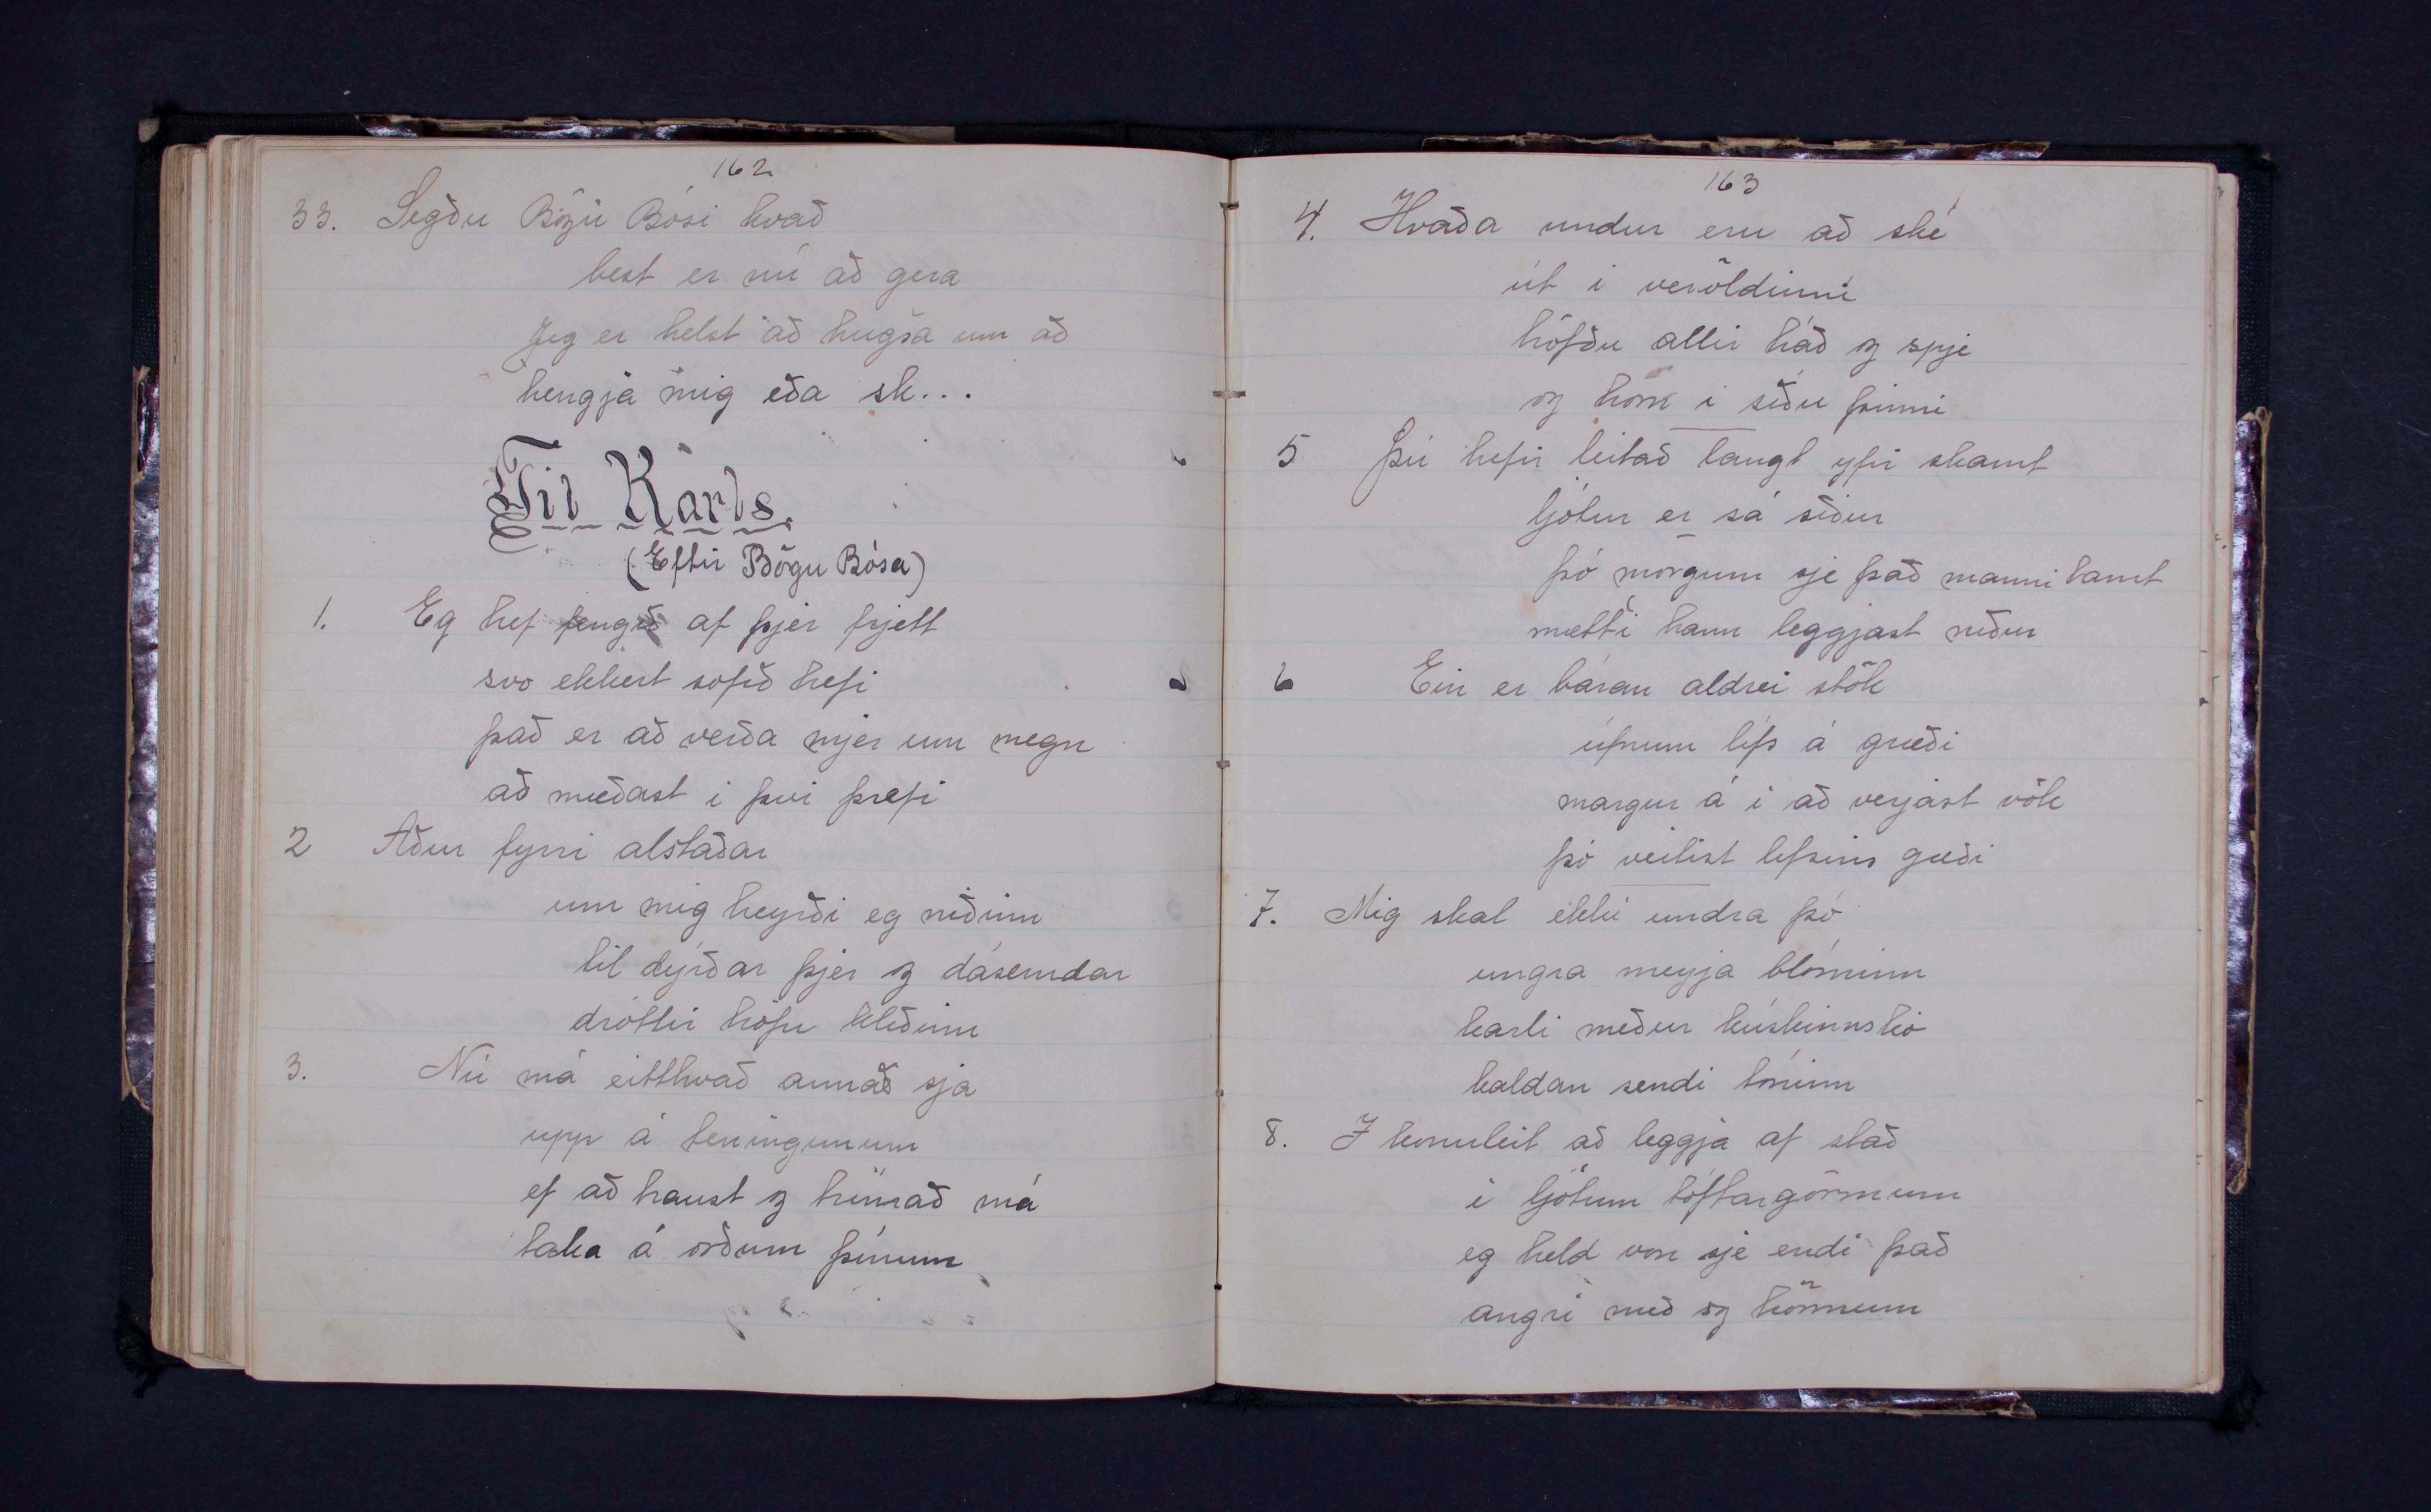 162
33. Segðu Bögu Bósi hvað
best er nú að gera
Jeg er helst að hugsa um að
hengja mig eða sk...
Til Karls.
(Eftir Bögu Bósa)
1. Eg hef fengið af þjer frjett
svo ekkert sofið hefi
það er að verða mjer um megn
að mæðast i þvi þrefi
2 Aður fyrri alstaðar
um mig heyrði eg niðinn
til dýrðar þjer og dásemdar
dróttir hófu kliðinn
3. Nú má eitthvað annað sja
upp á teningunum
ef að haust og húmað má
taka á orðum þínum
163
4. Hvaða undur eru að ské
út i veröldinni
höfðu allir háð og spje
og horn i siðu þinni
5 Þú hefir leitað langt yfir skamt
ljótur er sá siður
þó mörgum sje það manni tamt
mætti hann leggjast niður
6 Ein er báran aldrei stök
úfnum lífs á græði
margur á i að verjast vök
þó veilist lífsins gæði
7. Mig skal ekki undra þó
ungra meyja blóminn
karli meður kúskinnskó
kaldan sendi tóninn
8. I konuleit að leggja af stað
i ljótum tóftargörmum
eg held von sje endi það
angri með og hörmum